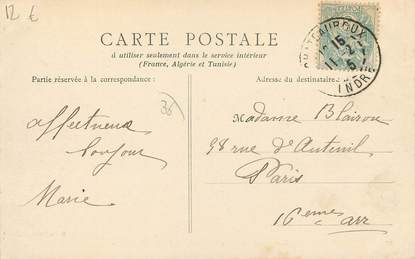 12 €
CARTE POSTALE
à utiliser seulement dans le service intérieur
(France, Algérie et Tunisie)
Partie réservée à la correspondance:
Adresse du destinataire
CHATEAUROUX
INDRE
36
affectueux
bonjour
Marie
Madame Blairon
98 rue d'Auteuil
Paris
16eme arr